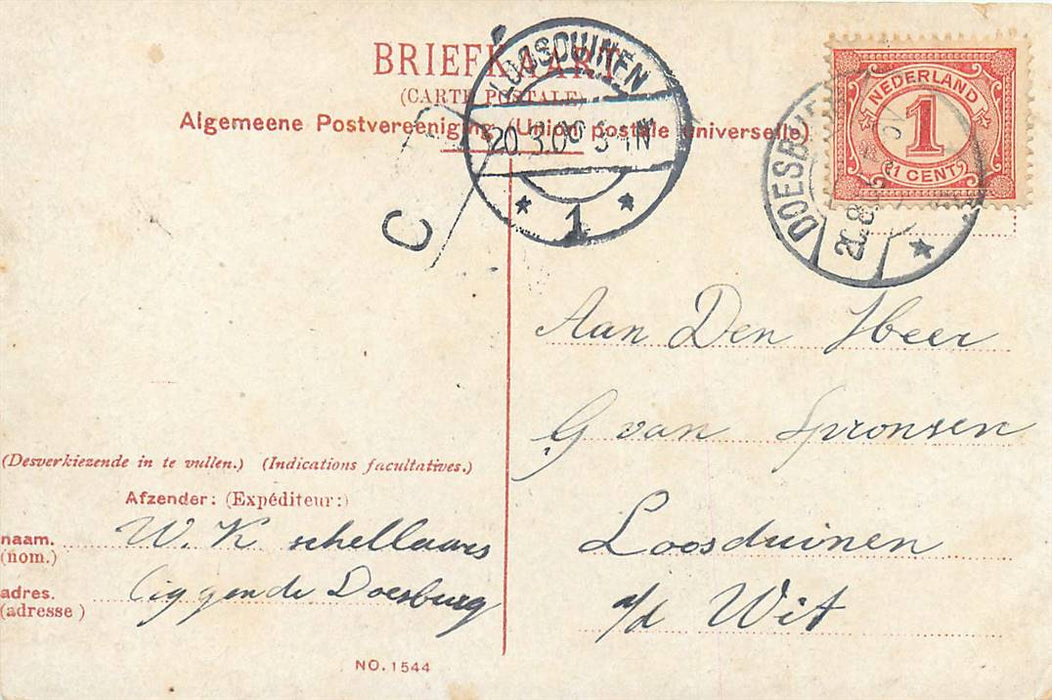 BRIEFKAART
(CARTE POSTALE)
Algemeene Postvereeniging (Union postale universelle)
LOOSDUINEN
20.3.0
1
C
NEDERLAND
1
1 CENT
DOESBU
Aan Den Heer
G van Spronsen
Loosduinen
a/d Wit
(Desverkiezende in te vullen.) (Indications facultatives.)
Afzender: (Expéditeur:)
naam. W. K schellaars
(nom.)
adres. liggende Doesburg
(adresse)
NO. 1544